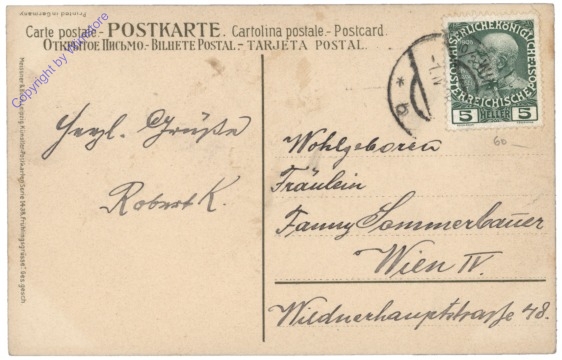 Printed in Germany
Carte postale.- POSTKARTE.- Cartolina postale.- Postcard.
ОТКРЫТОЕ ПИСЬМО.- BILHETE POSTAL.- TARJETA POSTAL.
Copyright by
KAISERLICHE KÖNIGLICHE
ÖSTERREICHISCHE
5 HELLER 5
* b
60
Herzl. Grüße
Robert K.
Wohlgeboren
Fräulein
Fanny Sommerbauer
Wien IV.
Wildnerhauptstraße 48.
Leipzig Künstler-Postkarten Serie "Frühlingsgrüsse" Ges. gesch.